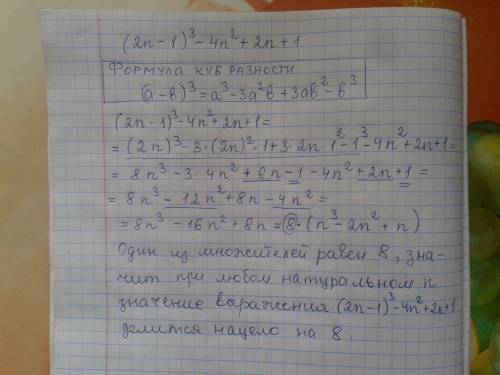 (2n-1)³-4n²+2n+1
ФОРМУЛА КУБ РАЗНОСТИ
(а-в)³=а³-3а²в+3ав²-в³
(2n-1)³-4n²+2n+1=
=(2n)³-3·(2n)²·1+3·2n·1²-1³-4n²+2n+1=
=8n³-3·4n²+6n-1-4n²+2n+1=
=8n³-12n²+8n-4n²=
=8n³-16n²+8n=8·(n³-2n²+n)
Один из множителей равен 8, зна-
чит при любом натуральном n
значение выражения (2n-1)³-4n²+2n+1
делится нацело на 8.